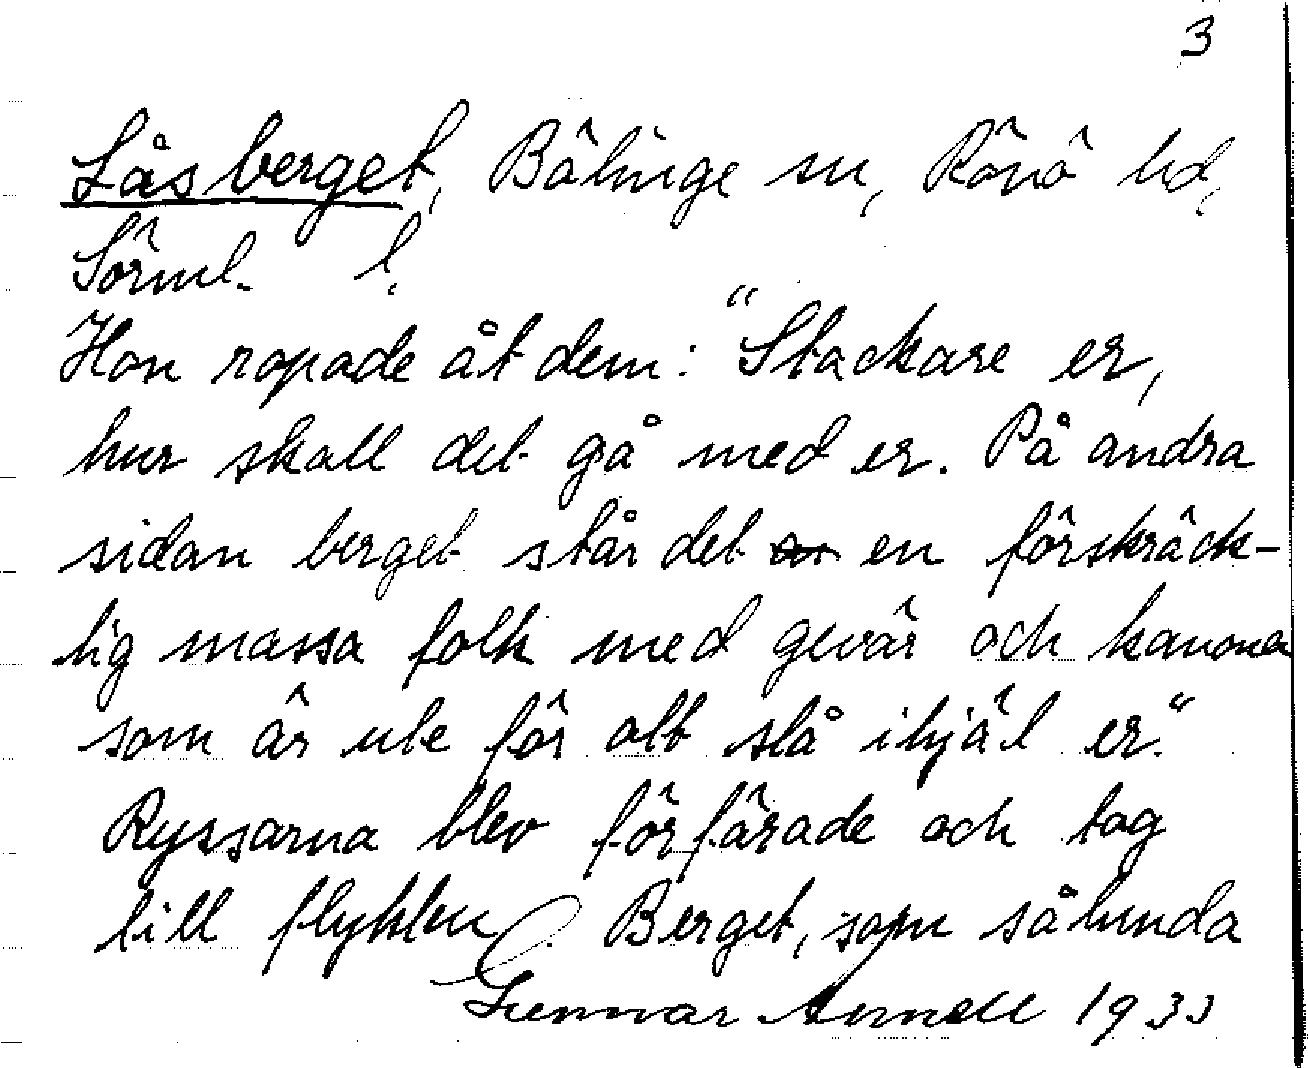 3
Låsberget, Bälinge sn, Rönö hd,
Sörml. l.
Hon ropade åt dem: "Stackare er,
hur skall det gå med er. På andra
sidan berget står det en förskräck-
lig massa folk med gevär och kanoner
som är ute för att slå ihjäl er."
Ryssarna blev förfärade och tog
till flykten. Berget, som sålunda
Gunnar Annell 1933